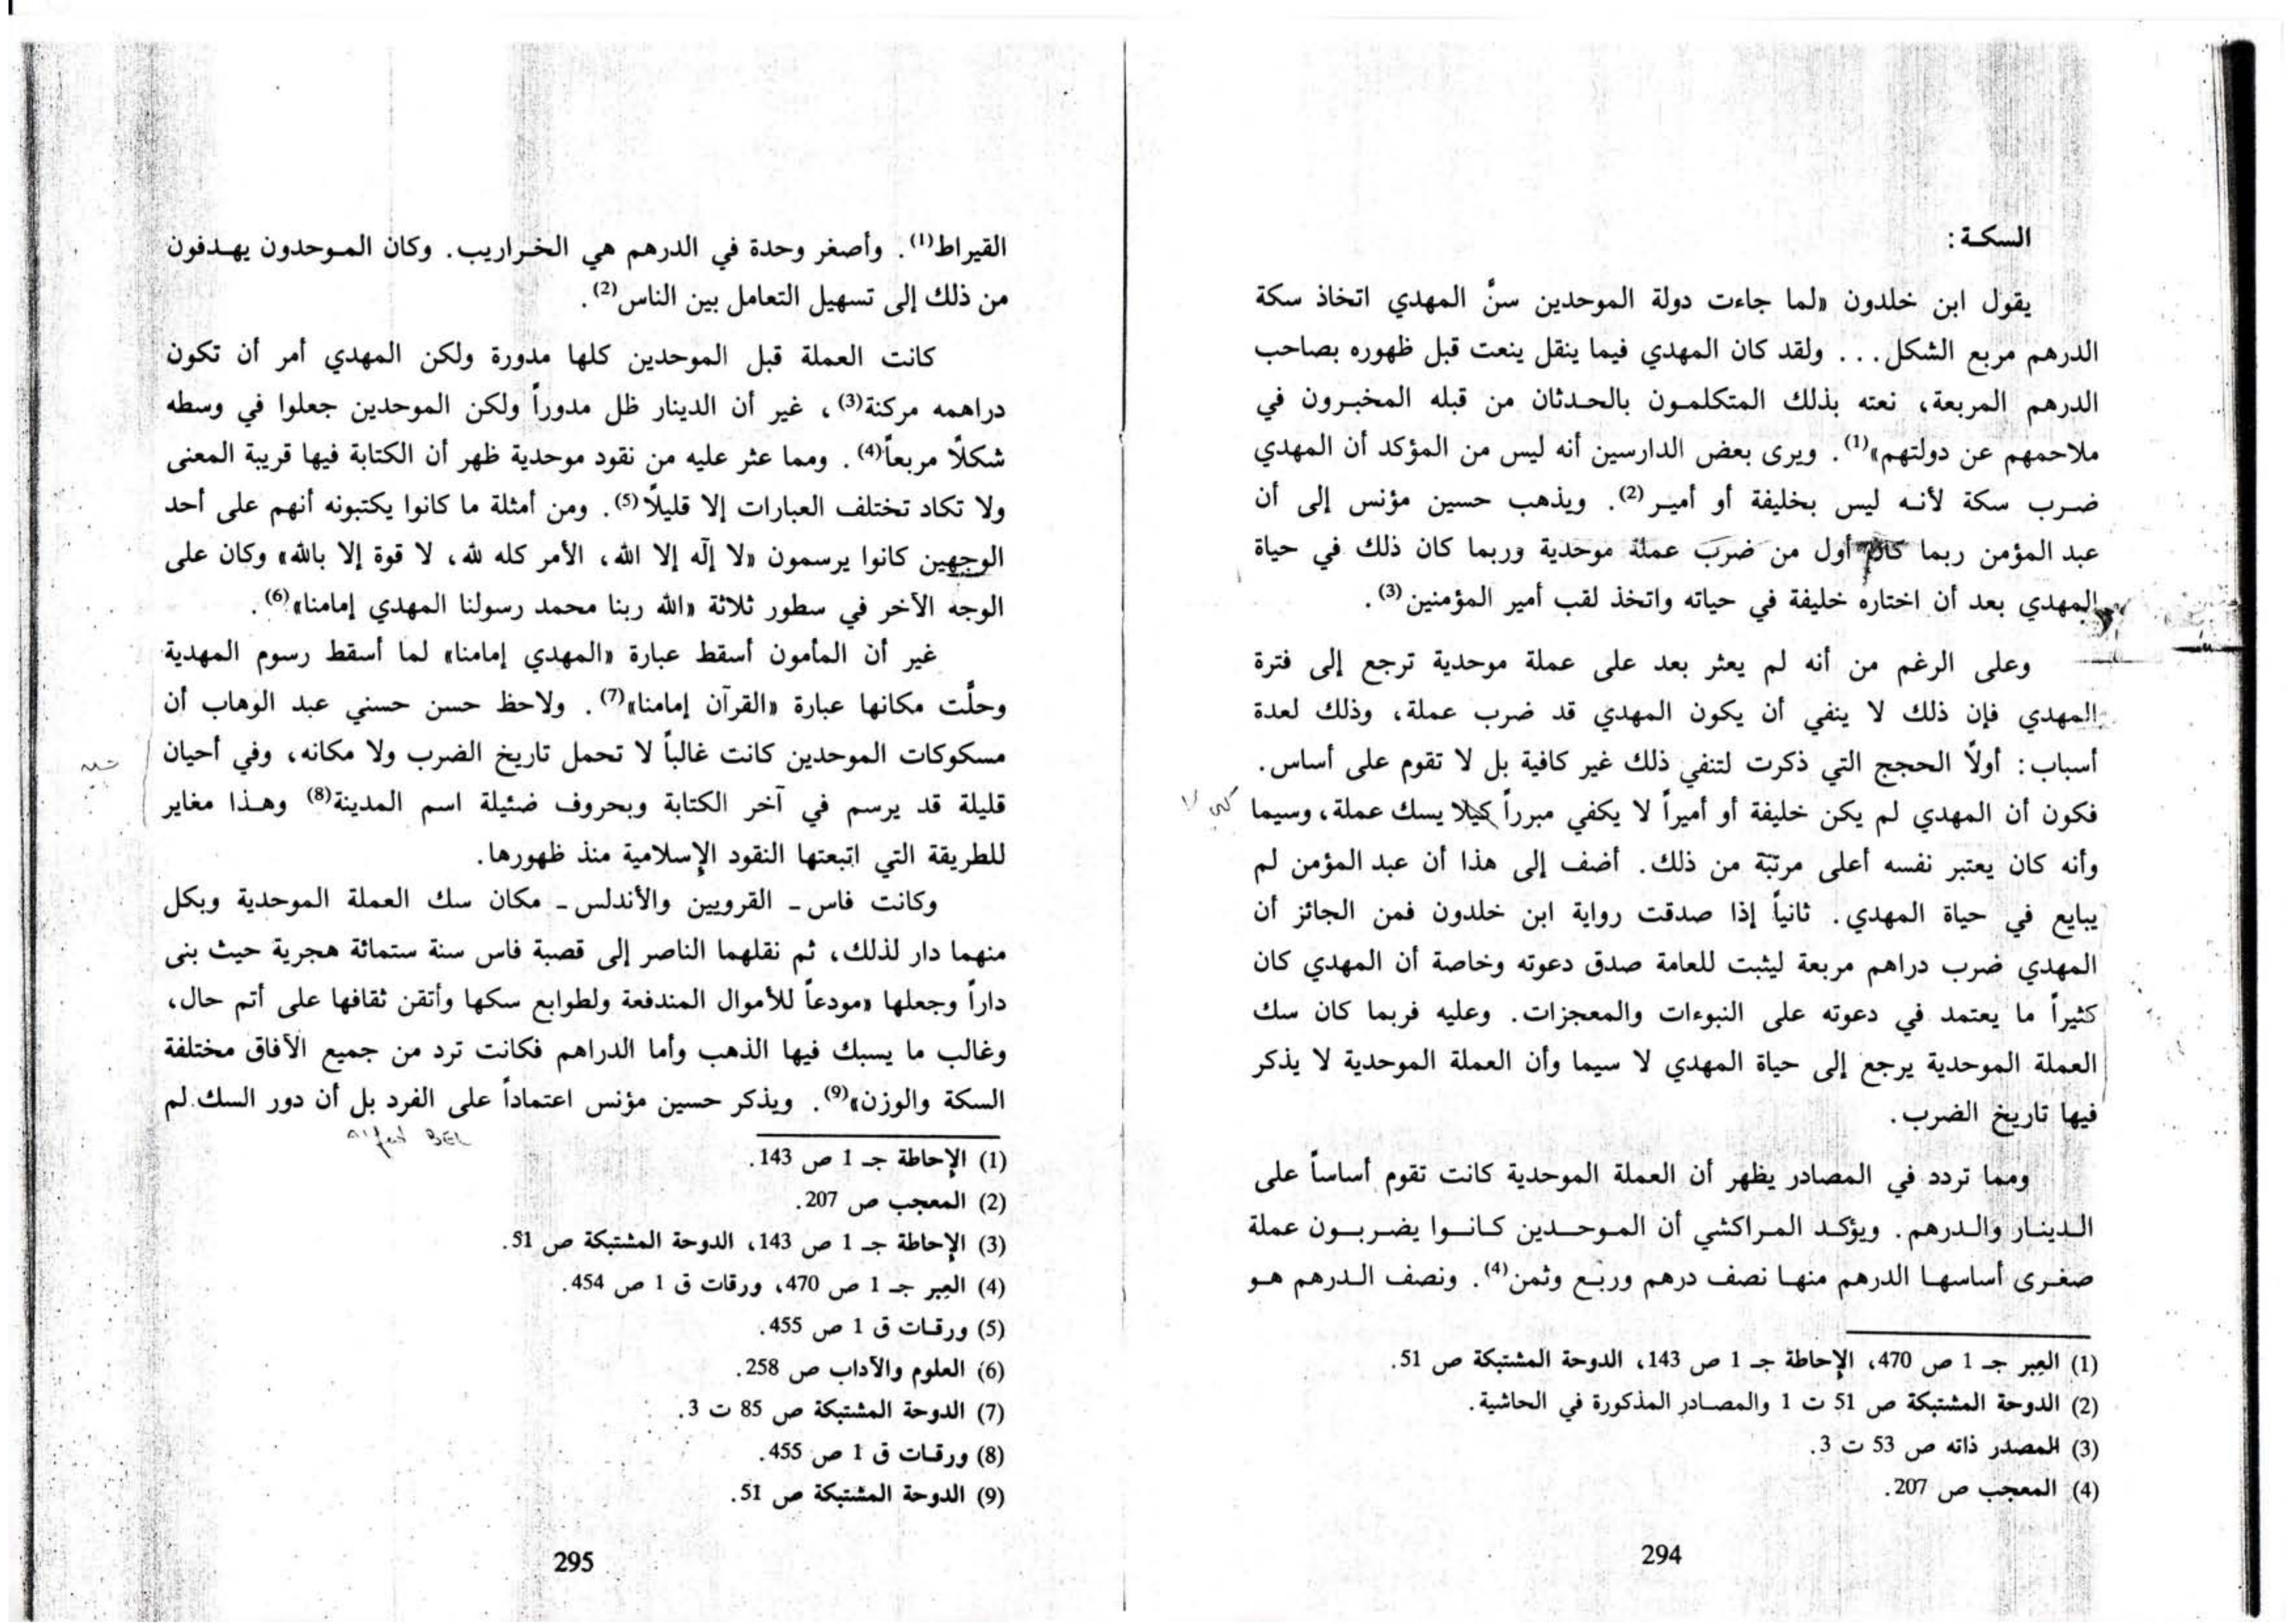 السكة :
يقول ابن خلدون «لما جاءت دولة الموحدين سنَّ المهدي اتخاذ سكة
الدرهم مربع الشكل... ولقد كان المهدي فيما ينقل ينعت قبل ظهوره بصاحب
الدرهم المربعة، نعته بذلك المتكلمون بالحدثان من قبله المخبرون في
ملاحمهم عن دولتهم»(1). ويرى بعض الدارسين أنه ليس من المؤكد أن المهدي
ضرب سكة لأنه ليس بخليفة أو أمير(2). ويذهب حسين مؤنس إلى أن
عبد المؤمن ربما كان أول من ضرب عملة موحدية وربما كان ذلك في حياة
المهدي بعد أن اختاره خليفة في حياته واتخذ لقب أمير المؤمنين(3).
وعلى الرغم من أنه لم يعثر بعد على عملة موحدية ترجع إلى فترة
المهدي فإن ذلك لا ينفي أن يكون المهدي قد ضرب عملة، وذلك لعدة
أسباب: أولاً الحجج التي ذكرت لتنفي ذلك غير كافية بل لا تقوم على أساس.
فكون أن المهدي لم يكن خليفة أو أميراً لا يكفي مبرراً كيلا يسك عملة، وسيما
كي لا
وأنه كان يعتبر نفسه أعلى مرتبة من ذلك. أضف إلى هذا أن عبد المؤمن لم
يبايع في حياة المهدي. ثانياً إذا صدقت رواية ابن خلدون فمن الجائز أن
المهدي ضرب دراهم مربعة ليثبت للعامة صدق دعوته وخاصة أن المهدي كان
كثيراً ما يعتمد في دعوته على النبوءات والمعجزات. وعليه فربما كان سك
العملة الموحدية يرجع إلى حياة المهدي لا سيما وأن العملة الموحدية لا يذكر
فيها تاريخ الضرب.
ومما تردد في المصادر يظهر أن العملة الموحدية كانت تقوم أساساً على
الدينار والدرهم. ويؤكد المراكشي أن الموحدين كانوا يضربون عملة
صغرى أساسها الدرهم منها نصف درهم وربع وثمن(4). ونصف الدرهم هو
(1) العبر جـ 1 ص 470، الإحاطة جـ 1 ص 143، الدوحة المشتبكة ص 51.
(2) الدوحة المشتبكة ص 51 ت 1 والمصادر المذكورة في الحاشية.
(3) المصدر ذاته ص 53 ت 3.
(4) المعجب ص 207.
294
القيراط(1). وأصغر وحدة في الدرهم هي الخراريب. وكان الموحدون يهدفون
من ذلك إلى تسهيل التعامل بين الناس(2).
كانت العملة قبل الموحدين كلها مدورة ولكن المهدي أمر أن تكون
دراهمه مركنة(3)، غير أن الدينار ظل مدوراً ولكن الموحدين جعلوا في وسطه
شكلاً مربعاً(4). ومما عثر عليه من نقود موحدية ظهر أن الكتابة فيها قريبة المعنى
ولا تكاد تختلف العبارات إلا قليلاً(5). ومن أمثلة ما كانوا يكتبونه أنهم على أحد
الوجهين كانوا يرسمون «لا إلٓه إلا الله، الأمر كله لله، لا قوة إلا بالله» وكان على
الوجه الآخر في سطور ثلاثة «الله ربنا محمد رسولنا المهدي إمامنا»(6).
غير أن المأمون أسقط عبارة «المهدي إمامنا» لما أسقط رسوم المهدية
وحلَّت مكانها عبارة «القرآن إمامنا»(7). ولاحظ حسن حسني عبد الوهاب أن
مسكوكات الموحدين كانت غالباً لا تحمل تاريخ الضرب ولا مكانه، وفي أحيان
قليلة قد يرسم في آخر الكتابة وبحروف ضئيلة اسم المدينة(8) وهذا مغاير
للطريقة التي اتبعتها النقود الإسلامية منذ ظهورها.
وكانت فاس - القرويين والأندلس - مكان سك العملة الموحدية وبكل
منهما دار لذلك، ثم نقلهما الناصر إلى قصبة فاس سنة ستمائة هجرية حيث بنى
داراً وجعلها «مودعاً للأموال المندفعة ولطوابع سكها وأتقن ثقافها على أتم حال،
وغالب ما يسبك فيها الذهب وأما الدراهم فكانت ترد من جميع الآفاق مختلفة
السكة والوزن»(9). ويذكر حسين مؤنس اعتماداً على الفرد بل أن دور السك لم
Alfred BEL
(1) الإحاطة جـ 1 ص 143.
(2) المعجب ص 207.
(3) الإحاطة جـ 1 ص 143، الدوحة المشتبكة ص 51.
(4) العبر جـ 1 ص 470، ورقات ق 1 ص 454.
(5) ورقات ق 1 ص 455.
(6) العلوم والآداب ص 258.
(7) الدوحة المشتبكة ص 85 ت 3.
(8) ورقات ق 1 ص 455.
(9) الدوحة المشتبكة ص 51.
295